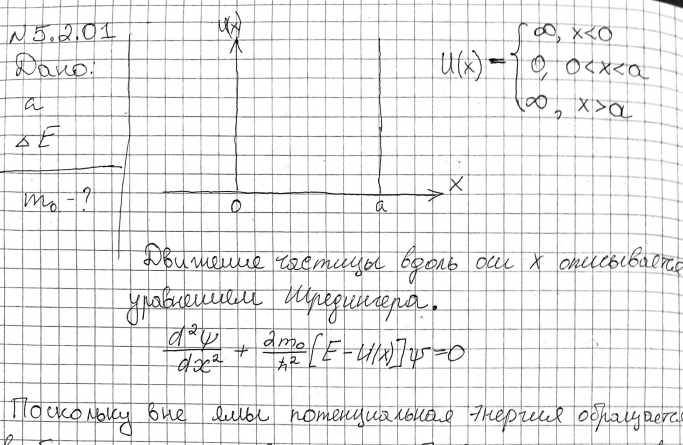 N 5.2.01
Дано:
a
ΔE
m₀ - ?
U(x)
0
a
x
U(x) = { ∞, x<0
0, 0<x<a
∞, x>a
Движение частицы вдоль оси x описывается
уравнением Шредингера.
d²ψ/dx² + 2m₀/ħ² [E - U(x)]ψ = 0
Поскольку вне ямы потенциальная энергия обращается